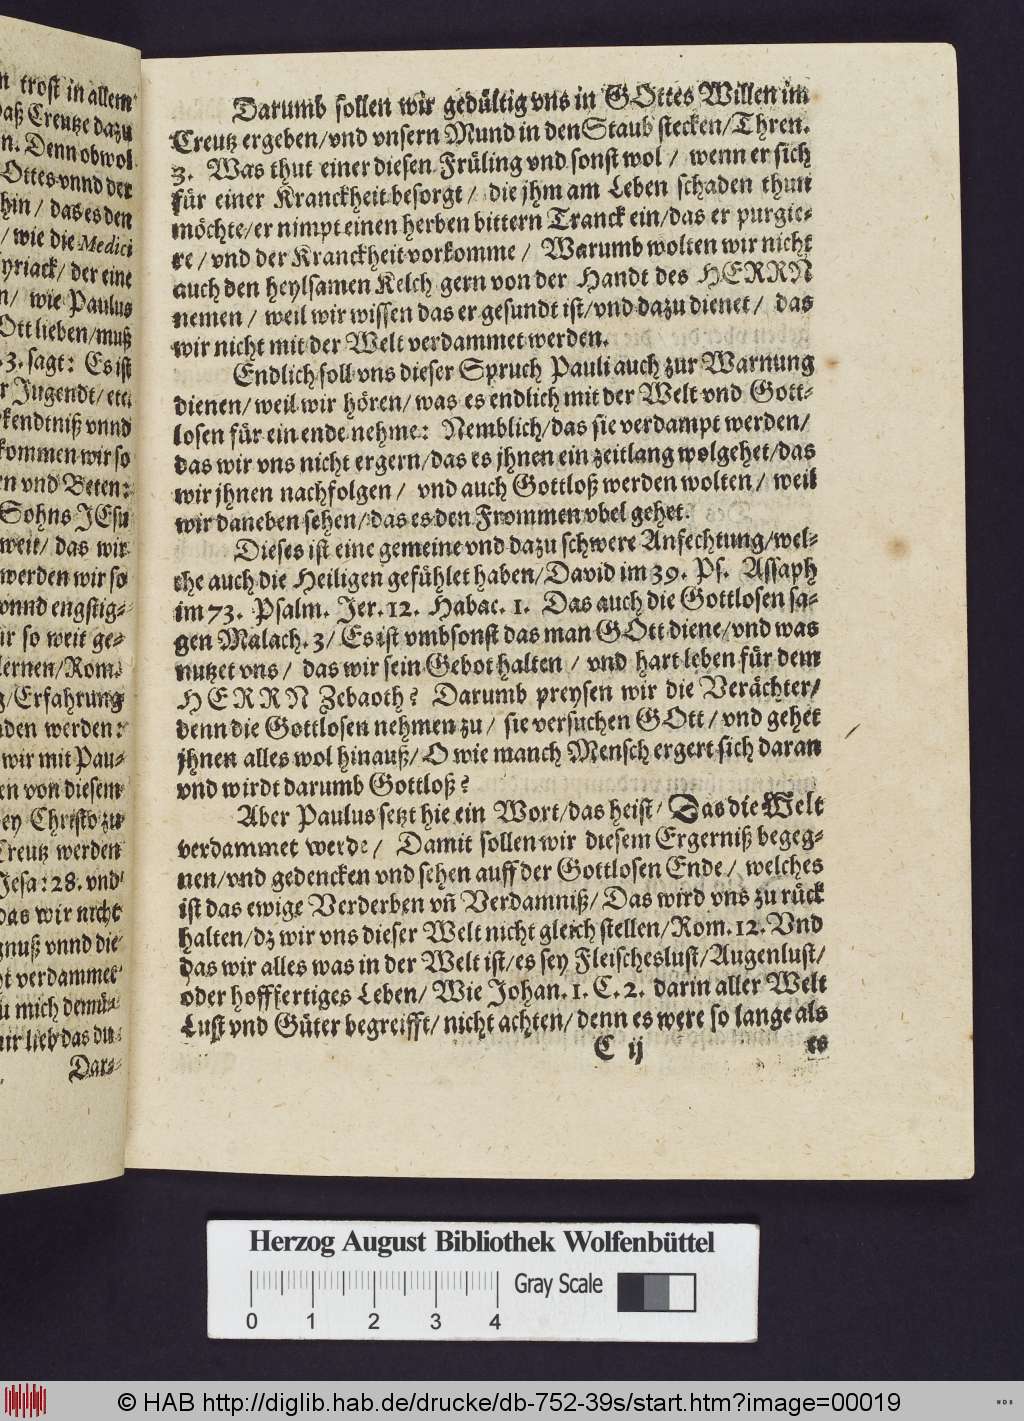 n trost in allem
daß Creutze dazu
n. Denn obwol
Ottes vnnd der
hin / das es den
/ wie die Medici
yriack / der eine
n / wie Paulus
Ott lieben / muß
.3. sagt: Es ist
r Jugendt / etc.
kendtniß vnnd
kommen wir so
en vnd Beten:
Sohns JEsu
weit / das wir
werden wir so
vnnd engstig-
ir so weit ge-
lernen / Rom.
g / Erfahrung
nden werden:
wir mit Pau-
en von diesem
ey Christo zu
Creutz werden
Jesa: 28. vnd
das wir nicht
gnuß vnnd die
ht verdammet
u mich demü-
mir lieb das du
Dar-
Darumb sollen wir gedültig vns in GOttes Willen im
Creutz ergeben / vnd vnsern Mund in den Staub stecken / Thren.
3. Was thut einer diesen Früling vnd sonst wol / wenn er sich
für einer Kranckheit besorgt / die jhm am Leben schaden thun
möchte / er nimpt einen herben bittern Tranck ein / das er purgie-
re / vnd der Kranckheit vorkomme / Warumb wolten wir nicht
auch den heylsamen Kelch gern von der Handt des HERRN
nemen / weil wir wissen das er gesundt ist / vnd dazu dienet / das
wir nicht mit der Welt verdammet werden.
Endlich soll vns dieser Spruch Pauli auch zur Warnung
dienen / weil wir hören / was es endlich mit der Welt vnd Gott-
losen für ein ende nehme: Nemblich / das sie verdampt werden /
das wir vns nicht ergern / das es jhnen ein zeitlang wolgehet / das
wir jhnen nachfolgen / vnd auch Gottloß werden wolten / weil
wir daneben sehen / das es den Frommen vbel gehet.
Dieses ist eine gemeine vnd dazu schwere Anfechtung / wel-
che auch die Heiligen gefühlet haben / David im 39. Ps. Assaph
im 73. Psalm. Jer. 12. Habac. 1. Das auch die Gottlosen sa-
gen Malach. 3 / Es ist vmbsonst das man GOtt diene / vnd was
nutzet vns / das wir sein Gebot halten / vnd hart leben für dem
HERRN Zebaoth? Darumb preysen wir die Verächter /
denn die Gottlosen nehmen zu / sie versuchen GOtt / vnd gehet
jhnen alles wol hinauß / O wie manch Mensch ergert sich daran
vnd wirdt darumb Gottloß?
Aber Paulus setzt hie ein Wort / das heist / Das die Welt
verdammet werde / Damit sollen wir diesem Ergerniß begeg-
nen / vnd gedencken vnd sehen auff der Gottlosen Ende / welches
ist das ewige Verderben vñ Verdamniß / Das wird vns zu rück
halten / dz wir vns dieser Welt nicht gleich stellen / Rom. 12. Vnd
das wir alles was in der Welt ist / es sey Fleischeslust / Augenlust /
oder hofffertiges Leben / Wie Johan. 1. C. 2. darin aller Welt
Lust vnd Güter begreifft / nicht achten / denn es were so lange als
C ij es
Herzog August Bibliothek Wolfenbüttel
Gray Scale
0 1 2 3 4
© HAB http://diglib.hab.de/drucke/db-752-39s/start.htm?image=00019